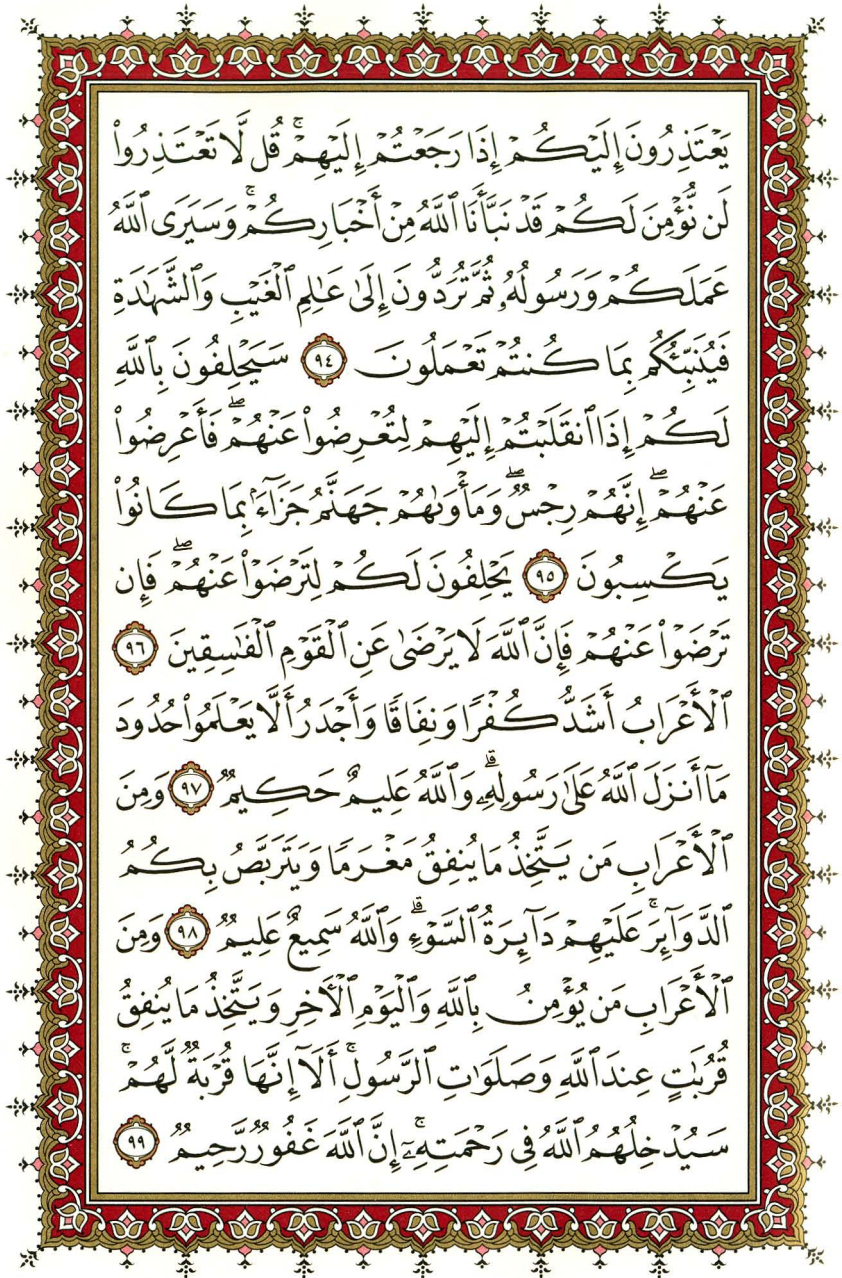 يَعْتَذِرُونَ إِلَيْكُمْ إِذَا رَجَعْتُمْ إِلَيْهِمْ ۚ قُل لَّا تَعْتَذِرُوا۟
لَن نُّؤْمِنَ لَكُمْ قَدْ نَبَّأَنَا ٱللَّهُ مِنْ أَخْبَارِكُمْ ۚ وَسَيَرَى ٱللَّهُ
عَمَلَكُمْ وَرَسُولُهُۥ ثُمَّ تُرَدُّونَ إِلَىٰ عَـٰلِمِ ٱلْغَيْبِ وَٱلشَّهَـٰدَةِ
فَيُنَبِّئُكُم بِمَا كُنتُمْ تَعْمَلُونَ ٩٤ سَيَحْلِفُونَ بِٱللَّهِ
لَكُمْ إِذَا ٱنقَلَبْتُمْ إِلَيْهِمْ لِتُعْرِضُوا۟ عَنْهُمْ ۖ فَأَعْرِضُوا۟
عَنْهُمْ ۖ إِنَّهُمْ رِجْسٌ ۖ وَمَأْوَىٰهُمْ جَهَنَّمُ جَزَآءًۢ بِمَا كَانُوا۟
يَكْسِبُونَ ٩٥ يَحْلِفُونَ لَكُمْ لِتَرْضَوْا۟ عَنْهُمْ ۖ فَإِن
تَرْضَوْا۟ عَنْهُمْ فَإِنَّ ٱللَّهَ لَا يَرْضَىٰ عَنِ ٱلْقَوْمِ ٱلْفَـٰسِقِينَ ٩٦
ٱلْأَعْرَابُ أَشَدُّ كُفْرًا وَنِفَاقًا وَأَجْدَرُ أَلَّا يَعْلَمُوا۟ حُدُودَ
مَآ أَنزَلَ ٱللَّهُ عَلَىٰ رَسُولِهِۦ ۗ وَٱللَّهُ عَلِيمٌ حَكِيمٌ ٩٧ وَمِنَ
ٱلْأَعْرَابِ مَن يَتَّخِذُ مَا يُنفِقُ مَغْرَمًا وَيَتَرَبَّصُ بِكُمُ
ٱلدَّوَآئِرَ ۚ عَلَيْهِمْ دَآئِرَةُ ٱلسَّوْءِ ۗ وَٱللَّهُ سَمِيعٌ عَلِيمٌ ٩٨ وَمِنَ
ٱلْأَعْرَابِ مَن يُؤْمِنُ بِٱللَّهِ وَٱلْيَوْمِ ٱلْـَٔاخِرِ وَيَتَّخِذُ مَا يُنفِقُ
قُرُبَـٰتٍ عِندَ ٱللَّهِ وَصَلَوَٰتِ ٱلرَّسُولِ ۚ أَلَآ إِنَّهَا قُرْبَةٌ لَّهُمْ ۚ
سَيُدْخِلُهُمُ ٱللَّهُ فِى رَحْمَتِهِۦٓ ۗ إِنَّ ٱللَّهَ غَفُورٌ رَّحِيمٌ ٩٩